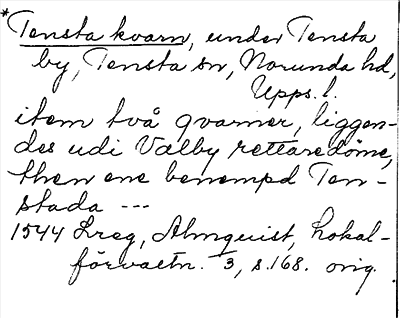 *Tensta kvarn, under Tensta
by, Tensta sn, Norunda hd,
Upps. l.
item två qvarner, liggen-
des udi Vælby rettaredöme,
then ene benempd Ten-
stada ---
1544 Lreg, Almquist, Lokal-
förvaltn. 3, s. 168. orig.